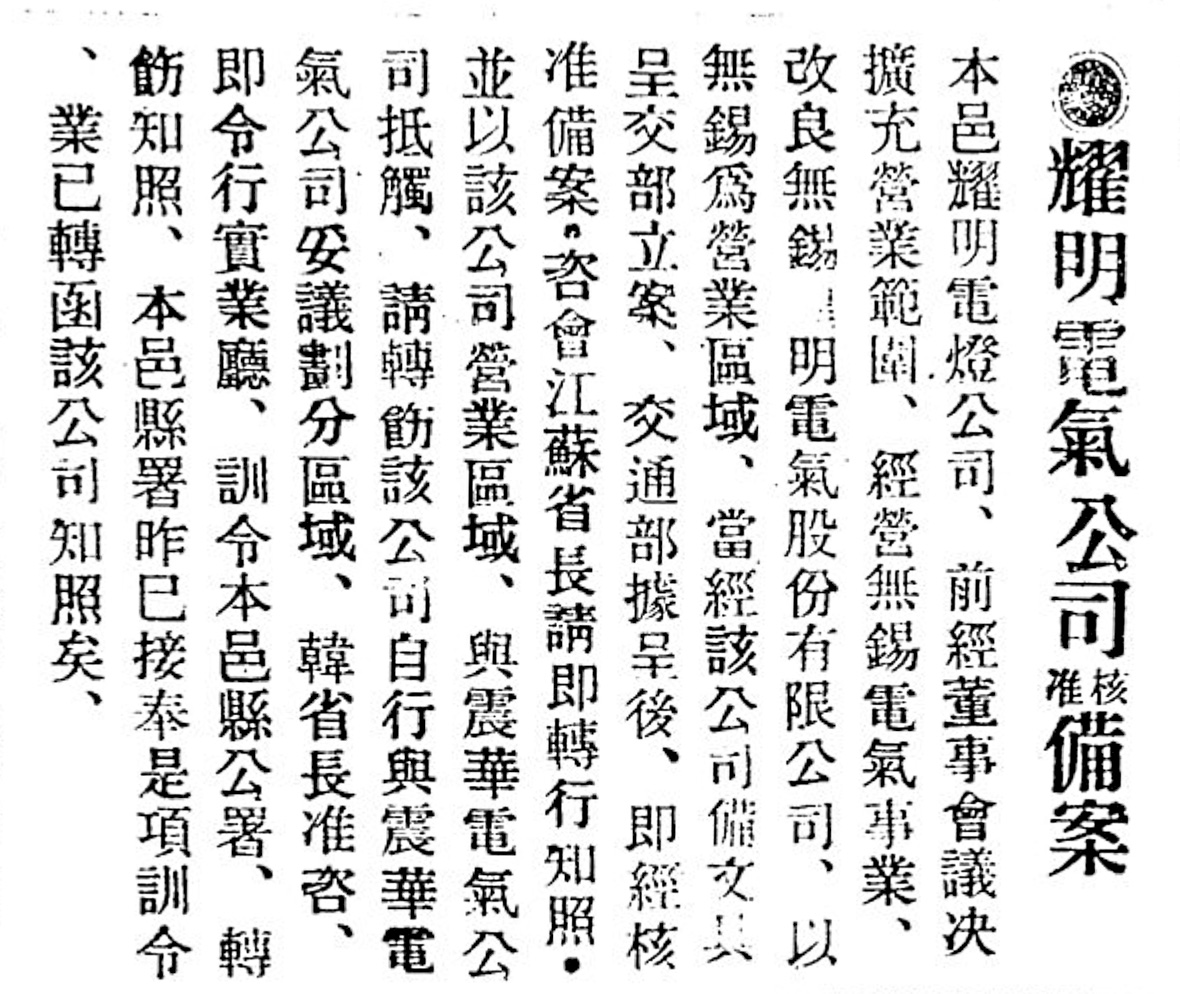 ◉耀明電氣公司核准備案
本邑耀明電燈公司、前經董事會議决
擴充營業範圍、經營無錫電氣事業、
改良無錫 明電氣股份有限公司、以
無錫爲營業區域、當經該公司備文具
呈交部立案、交通部據呈後、卽經核
准備案。咨會江蘇省長請卽轉行知照.
並以該公司營業區域、與震華電氣公
司抵觸、請轉飭該公司自行與震華電
氣公司妥議劃分區域、韓省長准咨、
卽令行實業廳、訓令本邑縣公署、轉
飭知照、本邑縣署昨已接奉是項訓令
、業已轉函該公司知照矣、